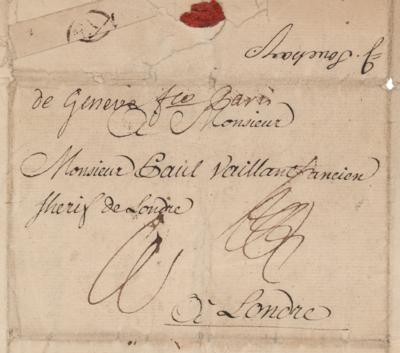 de Geneve fco Paris
A Monsieur
Monsieur Paul Vaillant ancien
sherif de Londre
à Londre